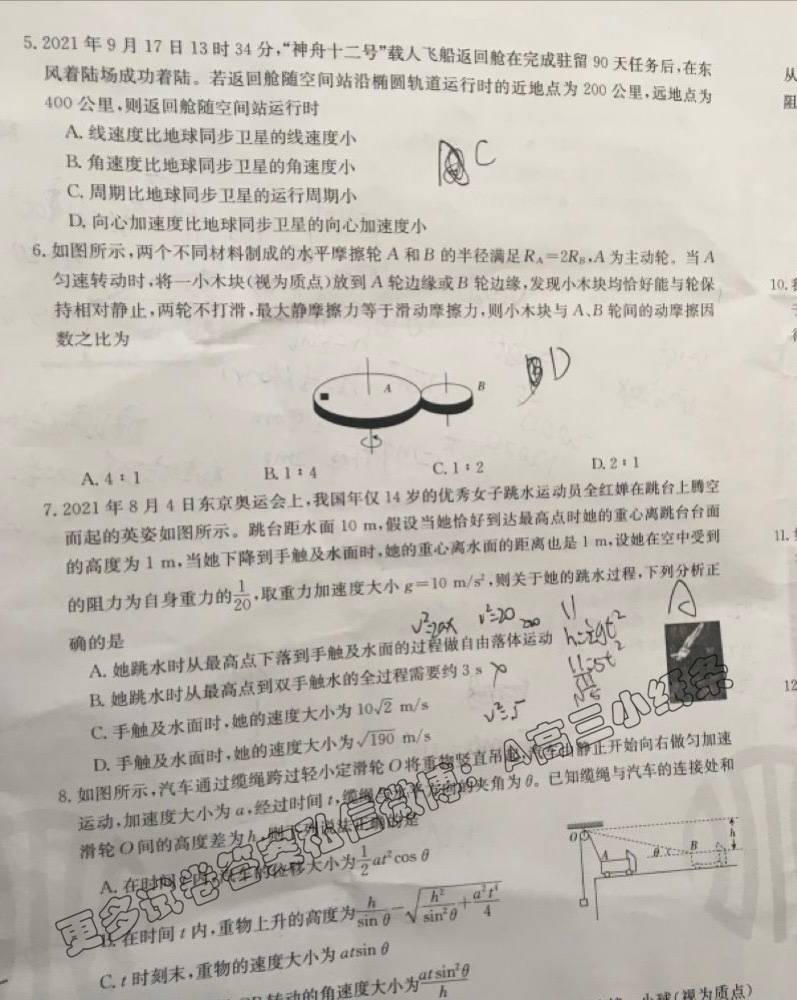 5. 2021 年 9 月 17 日 13 时 34 分,“神舟十二号”载人飞船返回舱在完成驻留 90 天任务后,在东
风着陆场成功着陆。若返回舱随空间站沿椭圆轨道运行时的近地点为 200 公里,远地点为
400 公里,则返回舱随空间站运行时
A. 线速度比地球同步卫星的线速度小
B. 角速度比地球同步卫星的角速度小
C
C. 周期比地球同步卫星的运行周期小
D. 向心加速度比地球同步卫星的向心加速度小
6. 如图所示,两个不同材料制成的水平摩擦轮 A 和 B 的半径满足 R_A=2R_B,A 为主动轮。当 A
匀速转动时,将一小木块(视为质点)放到 A 轮边缘或 B 轮边缘,发现小木块均恰好能与轮保
持相对静止,两轮不打滑,最大静摩擦力等于滑动摩擦力,则小木块与 A、B 轮间的动摩擦因
数之比为
D
A B
A. 4∶1 B. 1∶4 C. 1∶2 D. 2∶1
7. 2021 年 8 月 4 日东京奥运会上,我国年仅 14 岁的优秀女子跳水运动员全红婵在跳台上腾空
而起的英姿如图所示。跳台距水面 10 m,假设当她恰好到达最高点时她的重心离跳台台面
的高度为 1 m,当她下降到手触及水面时,她的重心离水面的距离也是 1 m,设她在空中受到
的阻力为自身重力的 1/20,取重力加速度大小 g=10 m/s²,则关于她的跳水过程,下列分析正
确的是
v²=2ax v²=20 220 11 A
h=½gt²
A. 她跳水时从最高点下落到手触及水面的过程做自由落体运动
11=5t²
B. 她跳水时从最高点到双手触水的全过程需要约 3 s
C. 手触及水面时,她的速度大小为 10√2 m/s
D. 手触及水面时,她的速度大小为 √190 m/s
8. 如图所示,汽车通过缆绳跨过轻小定滑轮 O 将重物竖直吊起,汽车由静止开始向右做匀加速
运动,加速度大小为 a,经过时间 t,缆绳与水平方向的夹角为 θ。已知缆绳与汽车的连接处和
滑轮 O 间的高度差为 h,则下列说法正确的是
O A θ B h
A. 在时间 t 内,汽车的位移大小为 ½at²cos θ
B. 在时间 t 内,重物上升的高度为 h/sin θ − √(h²/sin²θ + a²t⁴/4)
C. t 时刻末,重物的速度大小为 atsin θ
转动的角速度大小为 atsin²θ/h
小球(视为质点)
更多试卷答案私信微博:A高三小纸条
从
阻
10.
11.
12